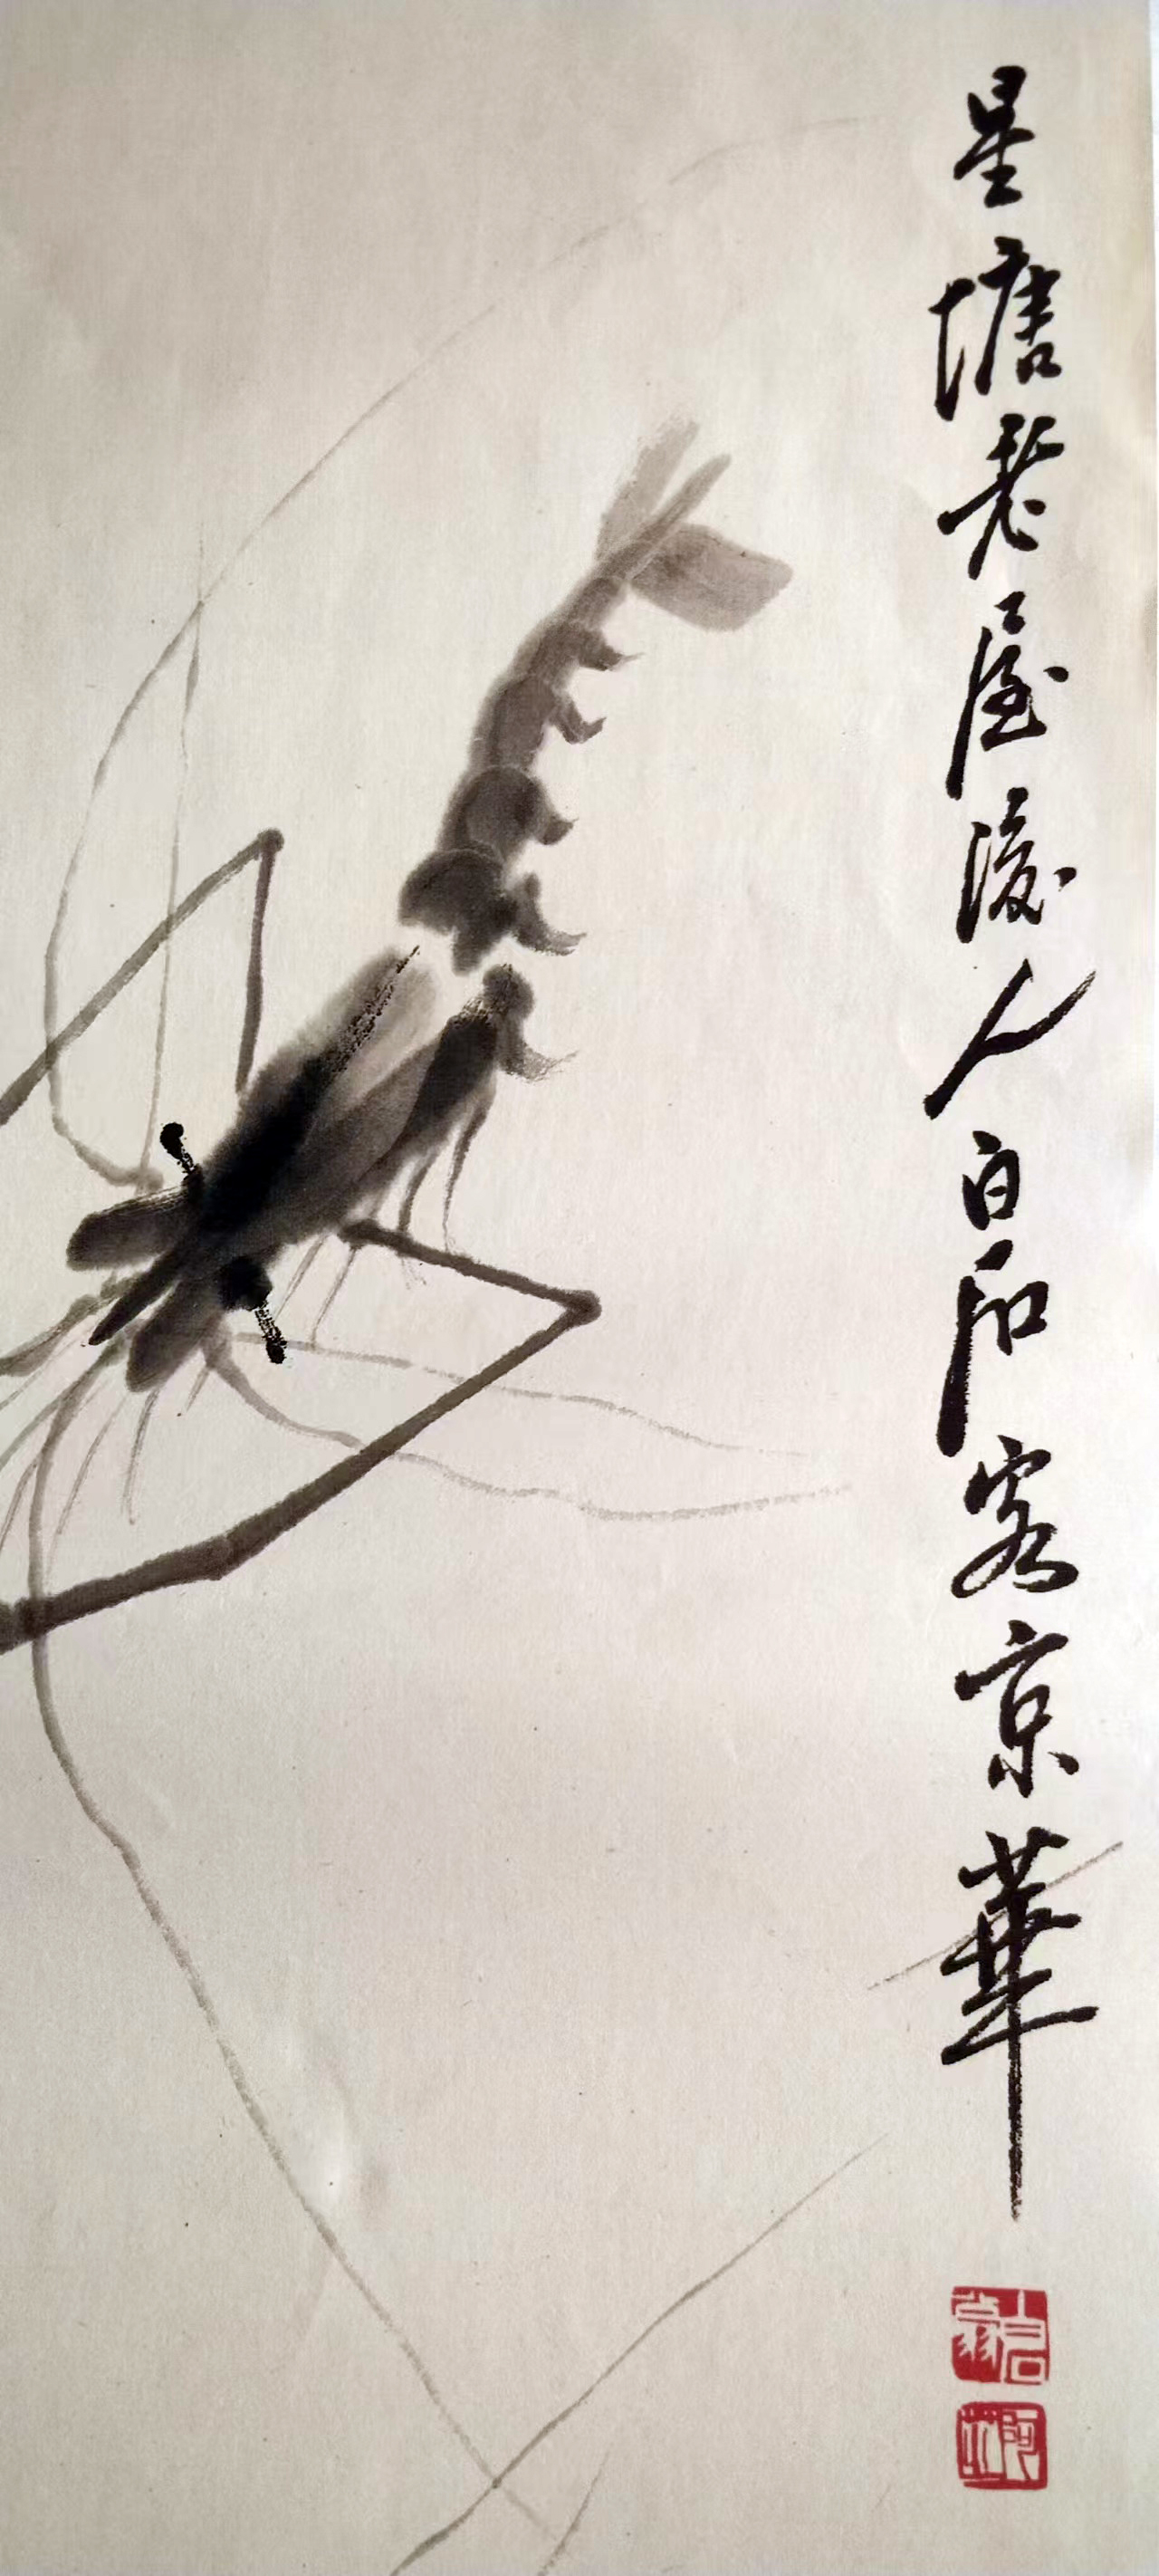 星塘老屋後人白石客京華
白石翁
阿芝